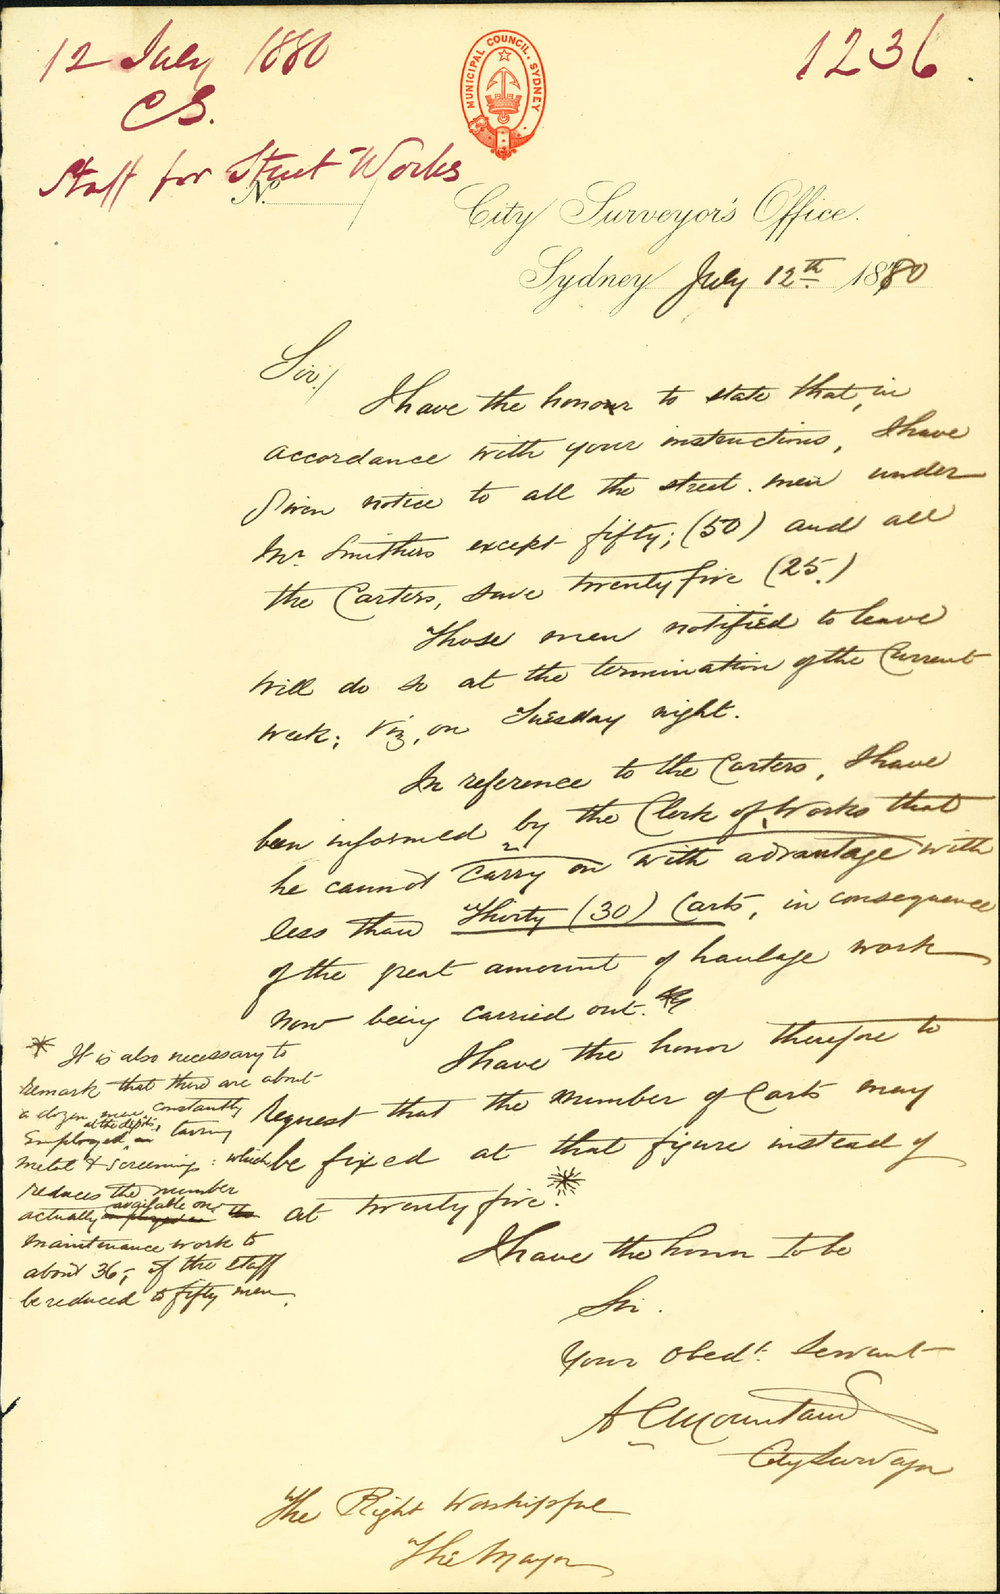 12 July 1880
1236
CS.
Staff for Street Works
MUNICIPAL COUNCIL. SYDNEY
No.
City Surveyor's Office.
Sydney July 12th 1880
Sir/
I have the honour to state that, in
accordance with your instructions, I have
Given notice to all the street men under
Mr. Smithers except fifty; (50) and all
the Carters, save twenty five (25.)
Those men notified to leave
will do so at the termination of the Current
week; viz, on Tuesday night.
In reference to the Carters, I have
been informed by the Clerk of Works that
he cannot carry on with advantage with
less than Thirty (30) Carts, in consequence
of the great amount of haulage work
now being carried out.
I have the honor therefore to
request that the number of Carts may
be fixed at that figure instead of
at twenty five.*
I have the honor to be
Sir.
Your obedt. Servant
A C Mountain
City Surveyor
The Right Worshipful
The Mayor
* It is also necessary to
remark that there are about
a dozen men constantly
Employed, at the depôts, in tarring
metal & screenings: which
reduces the number
actually available on
maintenance work to
about 36; if the staff
be reduced to fifty men.